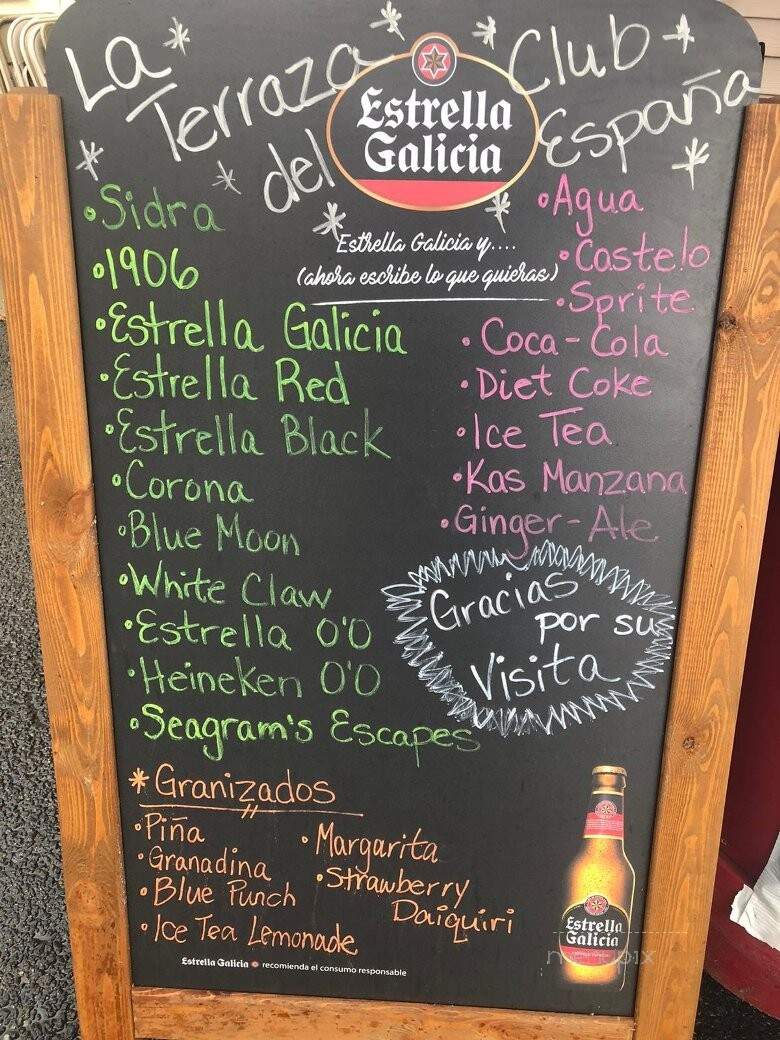 La Terraza Club
del España
Estrella
Galicia
Estrella Galicia y....
(ahora escribe lo que quieras)
•Sidra
•1906
•Estrella Galicia
•Estrella Red
•Estrella Black
•Corona
•Blue Moon
•White Claw
•Estrella 0'0
•Heineken 0'0
•Seagram's Escapes
•Agua
•Castelo
•Sprite
•Coca-Cola
•Diet Coke
•Ice Tea
•Kas Manzana
•Ginger-Ale
Gracias
por su
Visita
*Granizados
•Piña
•Granadina
•Blue Punch
•Ice Tea Lemonade
•Margarita
•Strawberry
Daiquiri
Estrella
Galicia
Estrella Galicia recomienda el consumo responsable
menupix